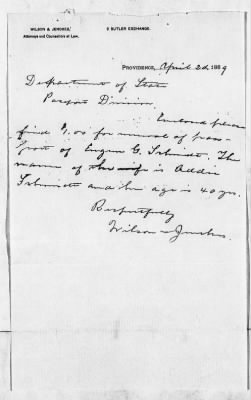 WILSON & JENCKES, 2 BUTLER EXCHANGE.
Attorneys and Counsellors at Law.
PROVIDENCE, April 2d, 1889
Department of State
Passport Division.
Enclosed please
find $1.00 for renewal of pass-
port of Eugene G. Schmidt. The
name of the wife is Addie
Schmidt and her age is 40 yrs.
Respectfully
Wilson & Jenckes.